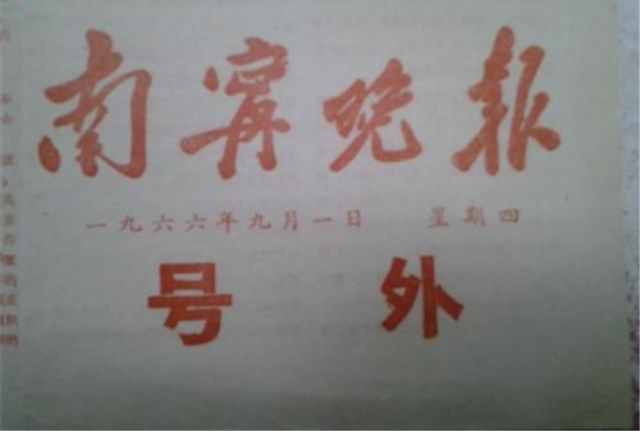 南寧晚报
一九六六年九月一日 星期四
号 外